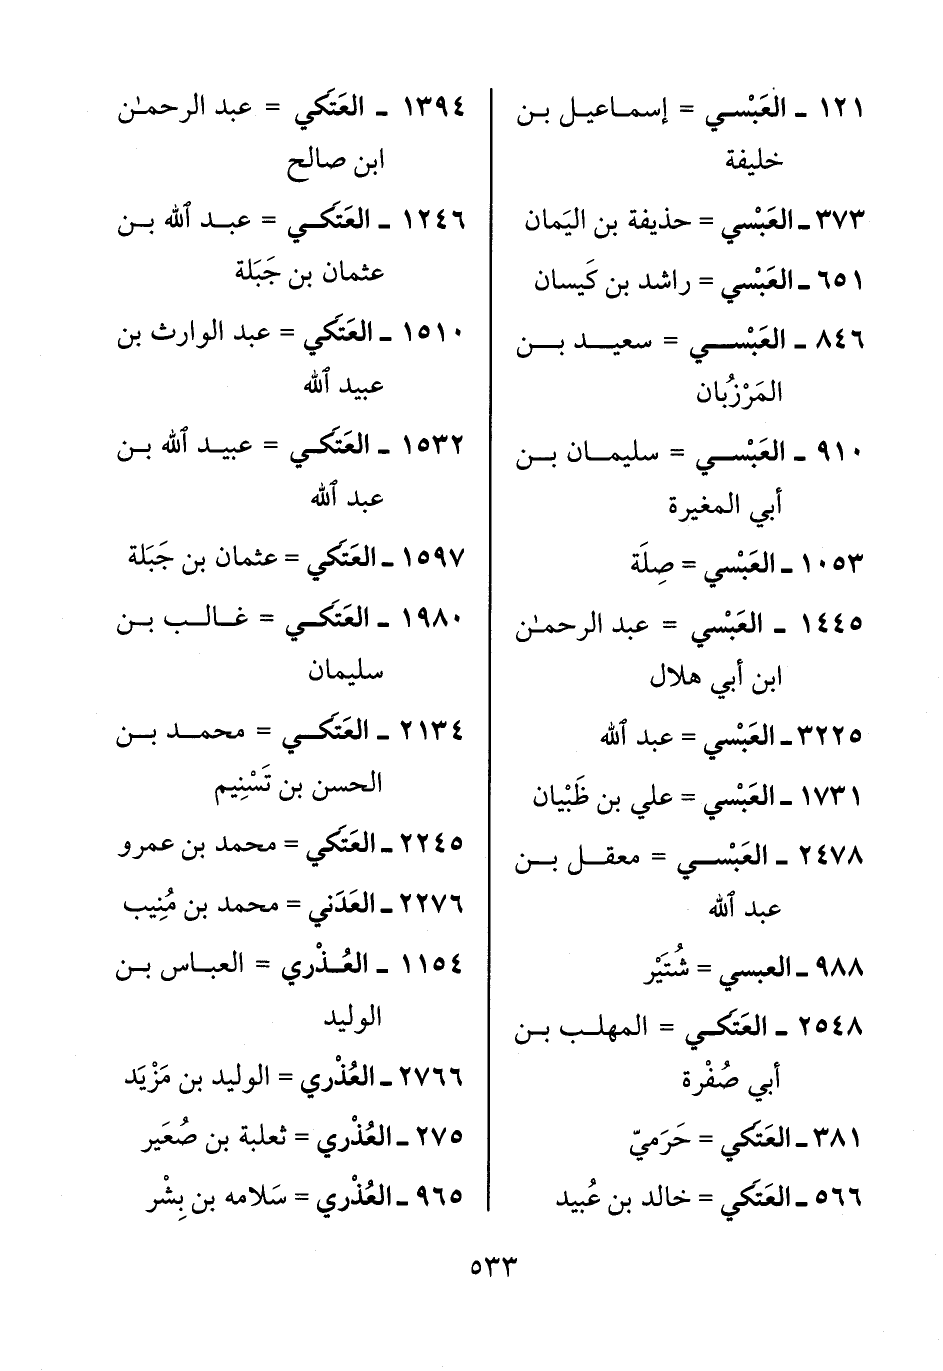 ١٢١ ـ العَبْسي = إسماعيل بن
خليفة
٣٧٣ ـ العَبْسي = حذيفة بن اليَمان
٦٥١ ـ العَبْسي = راشد بن كَيسان
٨٤٦ ـ العَبْسي = سعيد بن
المَرْزُبان
٩١٠ ـ العَبْسي = سليمان بن
أبي المغيرة
١٠٥٣ ـ العَبْسي = صِلَة
١٤٤٥ ـ العَبْسي = عبد الرحمـٰن
ابن أبي هلال
٣٢٢٥ ـ العَبْسي = عبد ٱلله
١٧٣١ ـ العَبْسي = علي بن ظَبْيان
٢٤٧٨ ـ العَبْسي = معقل بن
عبد ٱلله
٩٨٨ ـ العبسي = شُتَيْر
٢٥٤٨ ـ العَتَكي = المهلب بن
أبي صُفْرة
٣٨١ ـ العَتَكي = حَرَميّ
٥٦٦ ـ العَتَكي = خالد بن عُبيد
١٣٩٤ ـ العَتَكي = عبد الرحمـٰن
ابن صالح
١٢٤٦ ـ العَتَكي = عبد ٱلله بن
عثمان بن جَبَلة
١٥١٠ ـ العَتَكي = عبد الوارث بن
عبيد ٱلله
١٥٣٢ ـ العَتَكي = عبيد ٱلله بن
عبد ٱلله
١٥٩٧ ـ العَتَكي = عثمان بن جَبَلة
١٩٨٠ ـ العَتَكي = غالب بن
سليمان
٢١٣٤ ـ العَتَكي = محمد بن
الحسن بن تَسْنِيم
٢٢٤٥ ـ العَتَكي = محمد بن عمرو
٢٢٧٦ ـ العَدَني = محمد بن مُنِيب
١١٥٤ ـ العُذْري = العباس بن
الوليد
٢٧٦٦ ـ العُذْري = الوليد بن مَزْيَد
٢٧٥ ـ العُذْري = ثعلبة بن صُعَير
٩٦٥ ـ العُذْري = سَلامه بن بِشْر
٥٣٣